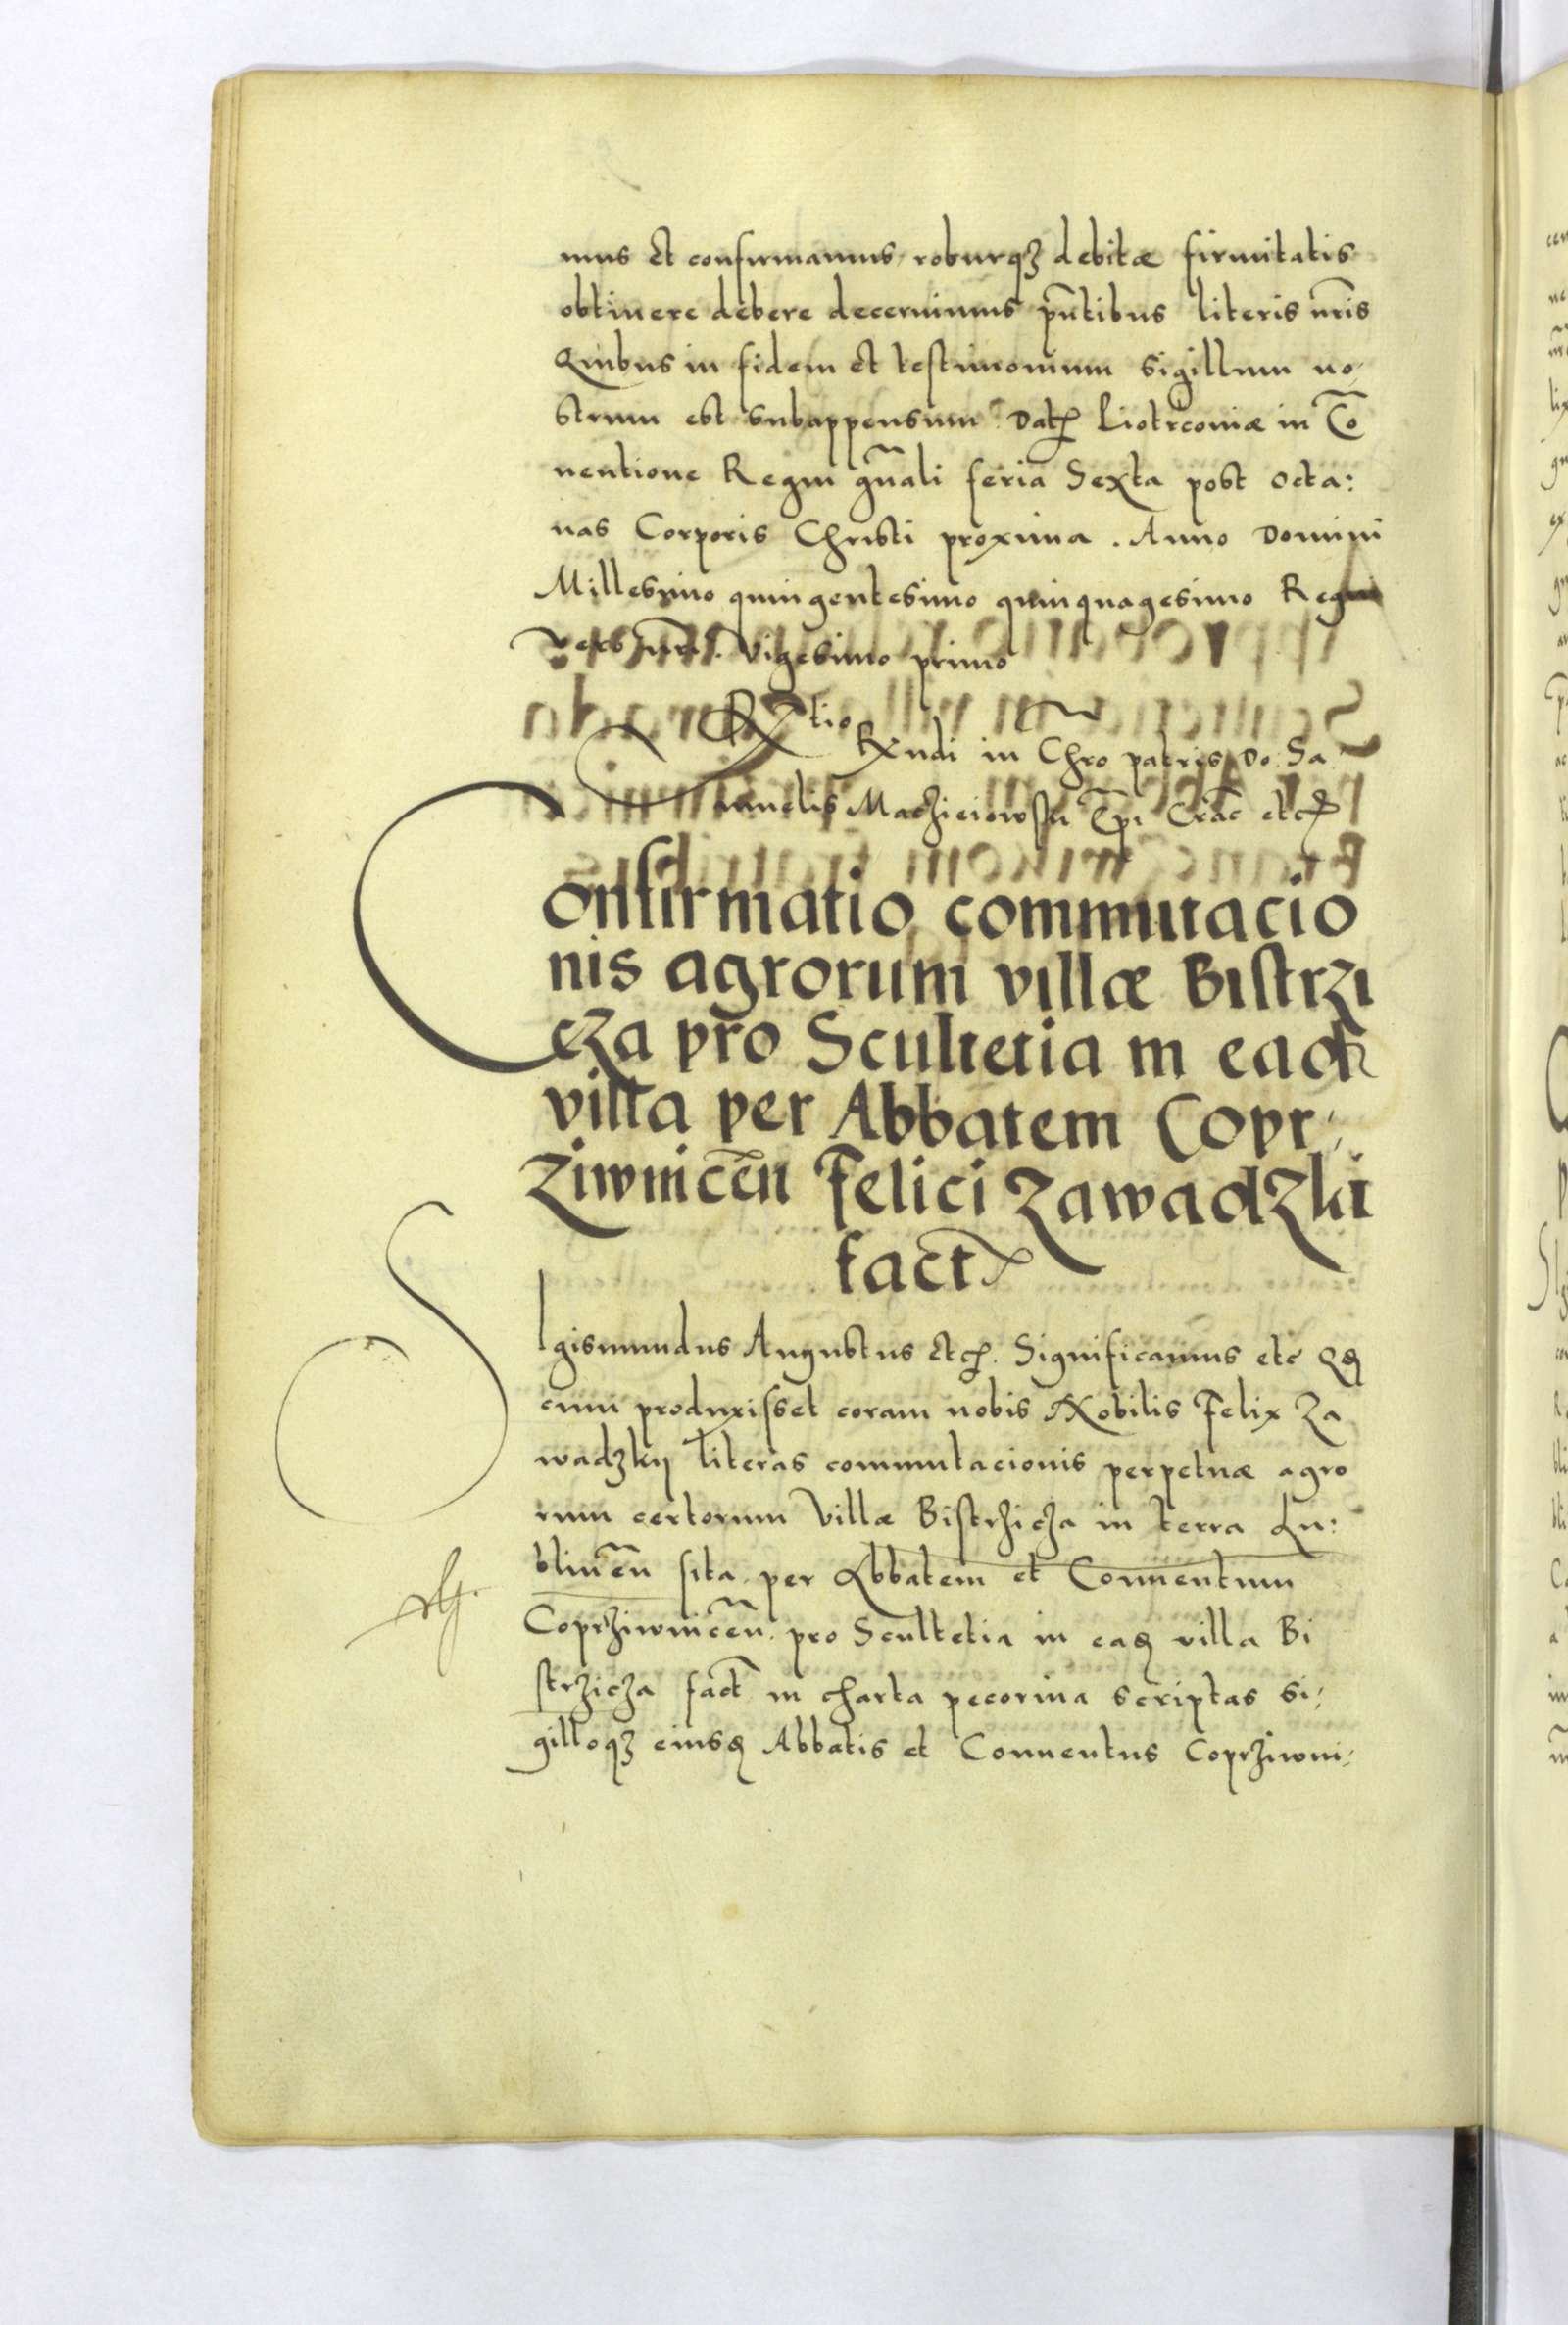 mus et confirmamus roburqȝ debitæ firmitatis
obtinere debere decernimus pñtibus literis nr̃is
Quibus in fidem et testimonium sigillum no-
strum est subappensum. Dat. Piotrcouiæ in Cõ
uentione Regni gñali feria Sexta post octa:
uas Corporis Christi proxima. Anno Domini
Millesimo quingentesimo quinquagesimo Regni
vero nr̃i. Vigesimo primo
Rtio
Rxndi in Chro patris Do: Sa
muelis Maczieiowsky Ep̃i Crãc etc
Confirmatio commutacio
nis agrorum villæ Bistrzi
cza pro Scultetia in ead
villa per Abbatem Copr-
ziwniceñ Felici Zawadzki
fact
Sigismundus Augustus etc. Significamus etc Qd
cum produxisset coram nobis Nobilis Felix Za
wadzkij literas commutacionis perpetuæ agro
rum certorum Villæ Bistrzicza in terra Lu:
blineñ sita per Abbatem et Conuentum
Coprziwniceñ. pro Scultetia in ead villa Bi
strzicza fact in charta pecorina scriptas si-
gilloqȝ eiusd Abbatis et Conuentus Coprziwni-